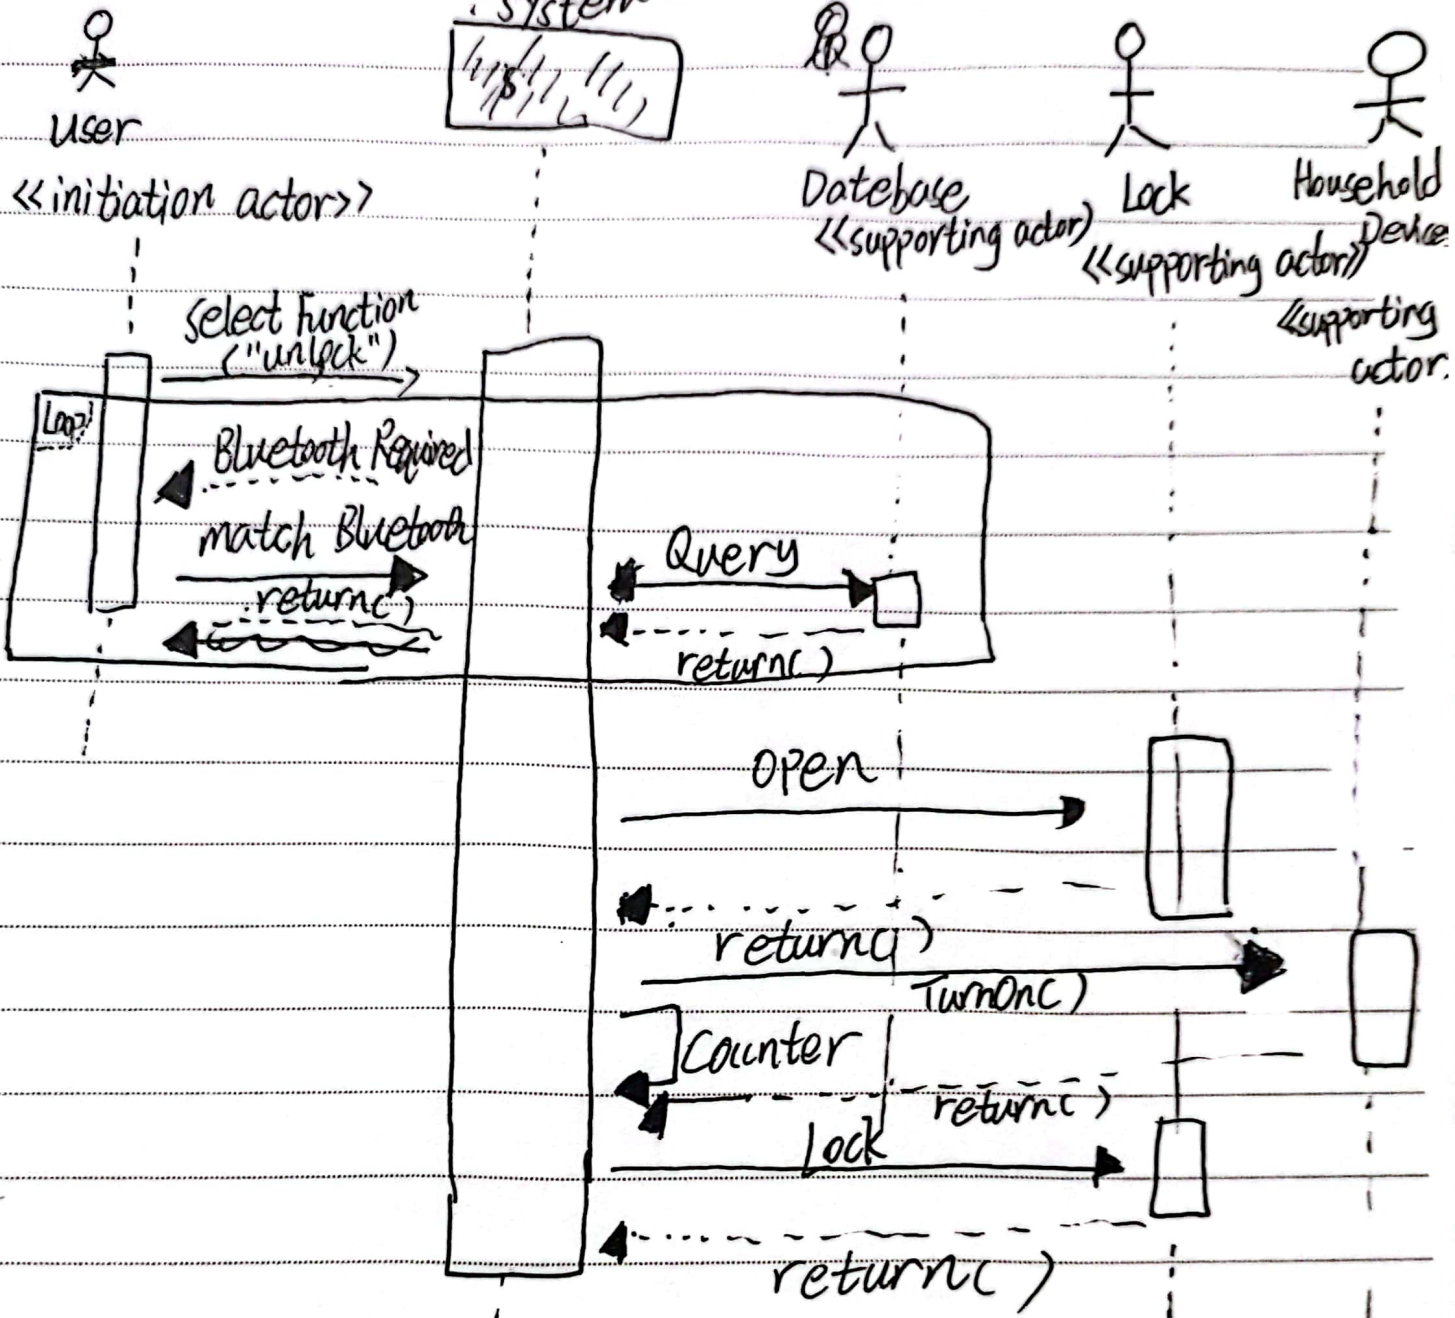 : system
user
<<initiation actor>>
Datebase
<<supporting actor>
Lock
<<supporting actor>>
Household
Device
<<supporting
actor.
select Function
("unlock")
Loop
Bluetooth Required
match Bluetooth
return()
Query
return()
open
return()
TurnOn()
Counter
return()
Lock
return()